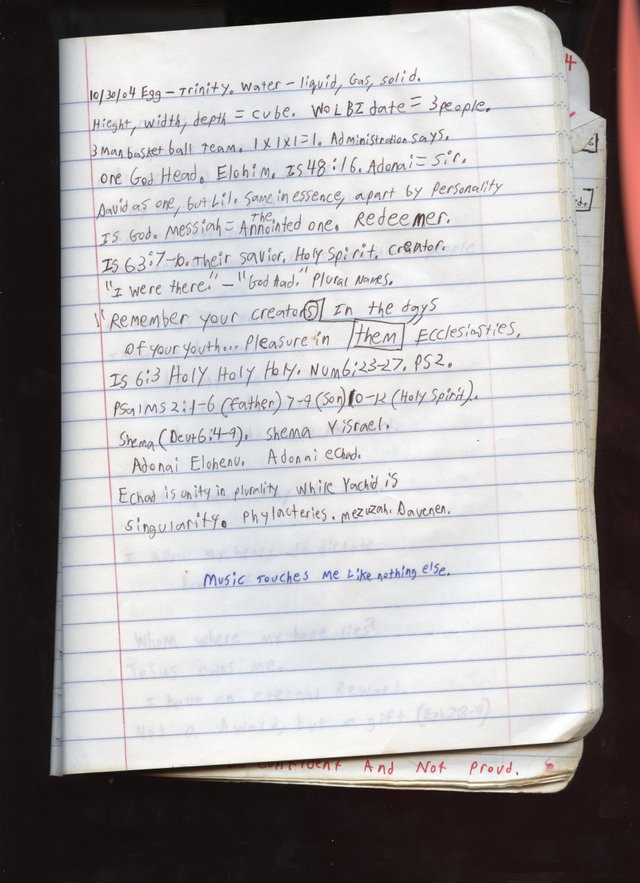 10/30/04 Egg - Trinity. Water - liquid, Gas, solid.
Hieght, width, depth = cube. WOLBI date = 3 people.
3 Man basket ball Team. 1x1x1=1. Administration says.
one God Head. Elohim. Is 48:16. Adonai = Sir.
David as one, but Lil. Same in essence, apart by Personality
Is God. Messiah = The Annointed one. Redeemer.
Is 63:7-10. Their Savior. Holy Spirit. creator.
"I were there." - "God had." Plural Names.
"Remember your creator(s) In the days
of your youth... Pleasure in them Ecclesiasties.
Is 6:3 Holy Holy Holy. Num 6:23-27. PS 2.
Psalms 2:1-6 (Father) 7-9 (Son) 10-12 (Holy Spirit).
Shema (Deut 6:4-9). Shema Yisrael.
Adonai Elohenu. Adonai echad.
Echad is unity in plurality while Yachid is
singularity. Phylacteries. Mezuzah. Davenen.
Music Touches Me Like nothing else.
And Not Proud.
4